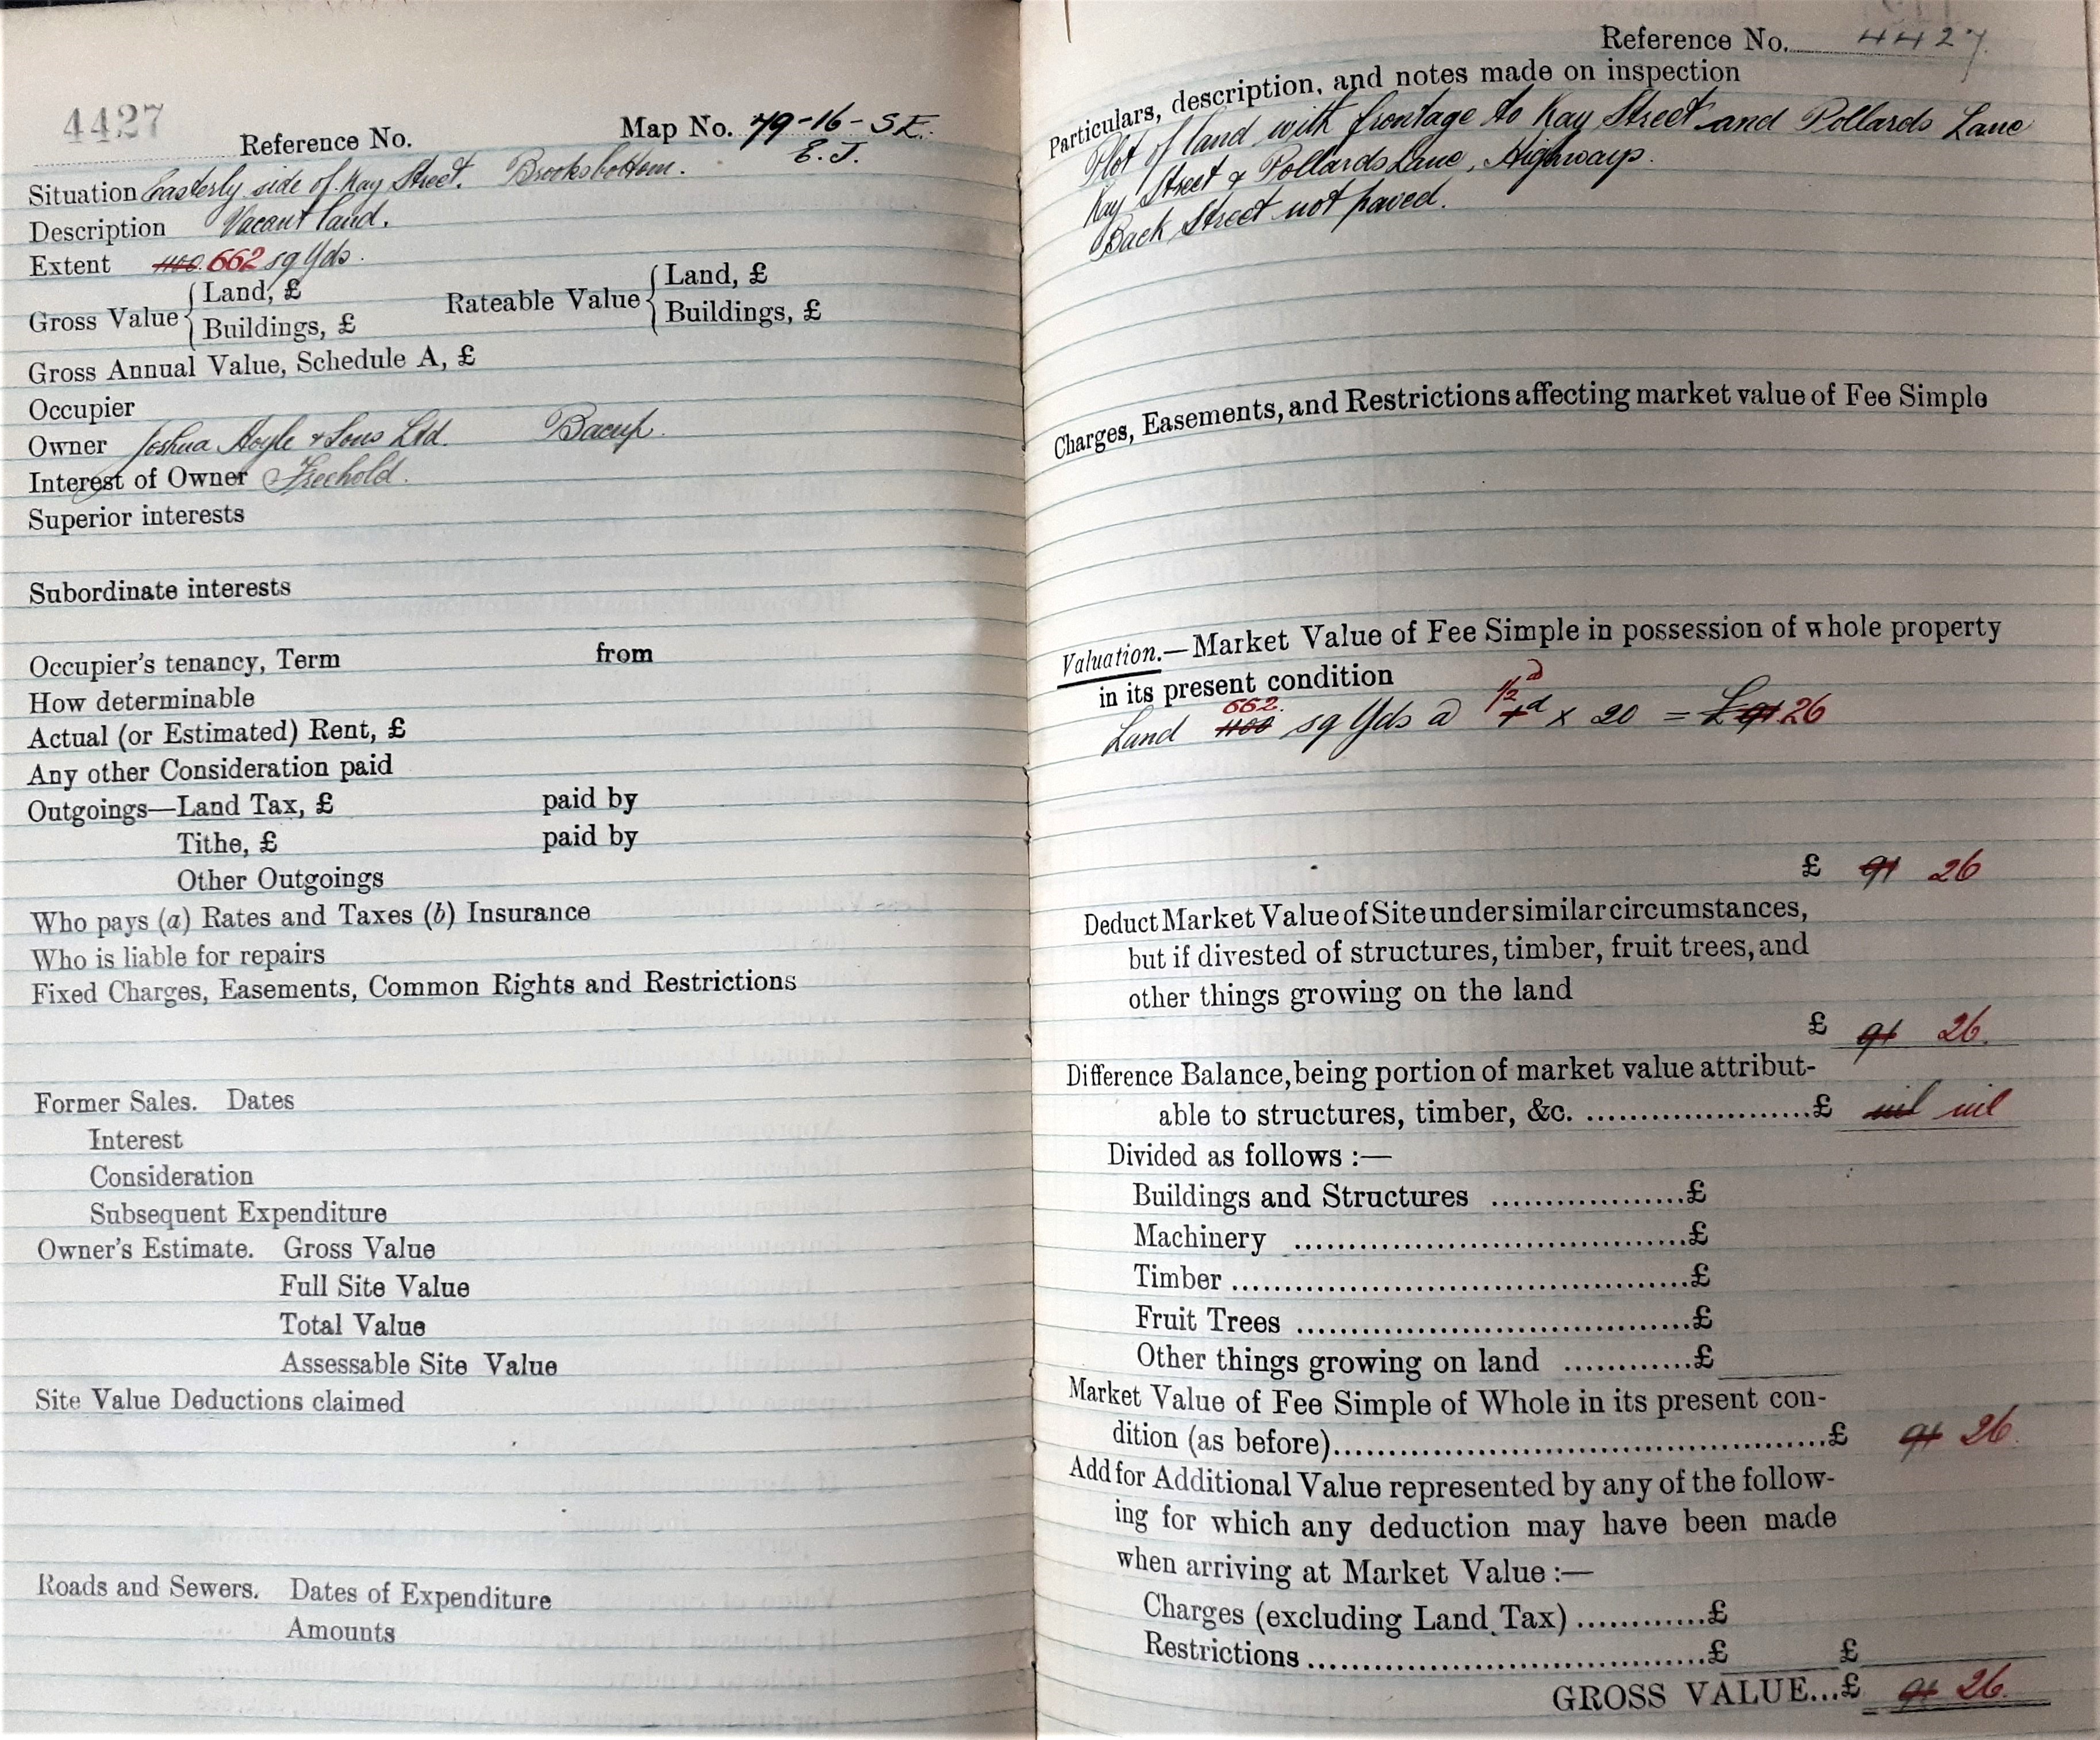 4427
Reference No. Map No. 79-16-S.E.
E.J.
Situation Easterly side of Kay Street. Brooksbottom.
Description Vacant land.
Extent 1100 662 sq Yds.
Gross Value { Land, £
Buildings, £
Rateable Value { Land, £
Buildings, £
Gross Annual Value, Schedule A, £
Occupier
Owner Joshua Hoyle & Sons Ltd. Bacup.
Interest of Owner Freehold.
Superior interests
Subordinate interests
Occupier's tenancy, Term from
How determinable
Actual (or Estimated) Rent, £
Any other Consideration paid
Outgoings—Land Tax, £ paid by
Tithe, £ paid by
Other Outgoings
Who pays (a) Rates and Taxes (b) Insurance
Who is liable for repairs
Fixed Charges, Easements, Common Rights and Restrictions
Former Sales. Dates
Interest
Consideration
Subsequent Expenditure
Owner's Estimate. Gross Value
Full Site Value
Total Value
Assessable Site Value
Site Value Deductions claimed
Roads and Sewers. Dates of Expenditure
Amounts
Reference No. 4427.
Particulars, description, and notes made on inspection
Plot of land with frontage to Kay Street and Pollards Lane
Kay Street & Pollards Lane, Highways.
Back Street not paved.
Charges, Easements, and Restrictions affecting market value of Fee Simple
Valuation.—Market Value of Fee Simple in possession of whole property
in its present condition
662. 1/2 d
Land 1100 sq Yds @ 1d x 20 = £91 26
£ 91 26
Deduct Market Value of Site under similar circumstances,
but if divested of structures, timber, fruit trees, and
other things growing on the land
£ 91 26.
Difference Balance, being portion of market value attribut-
able to structures, timber, &c. ......................£ nil nil
Divided as follows :—
Buildings and Structures ...................£
Machinery ......................................£
Timber ............................................£
Fruit Trees ......................................£
Other things growing on land ............£
Market Value of Fee Simple of Whole in its present con-
dition (as before)................................................£ 91 26.
Add for Additional Value represented by any of the follow-
ing for which any deduction may have been made
when arriving at Market Value :—
Charges (excluding Land Tax) ............£
Restrictions .......................................£ £
GROSS VALUE...£ 91 26.